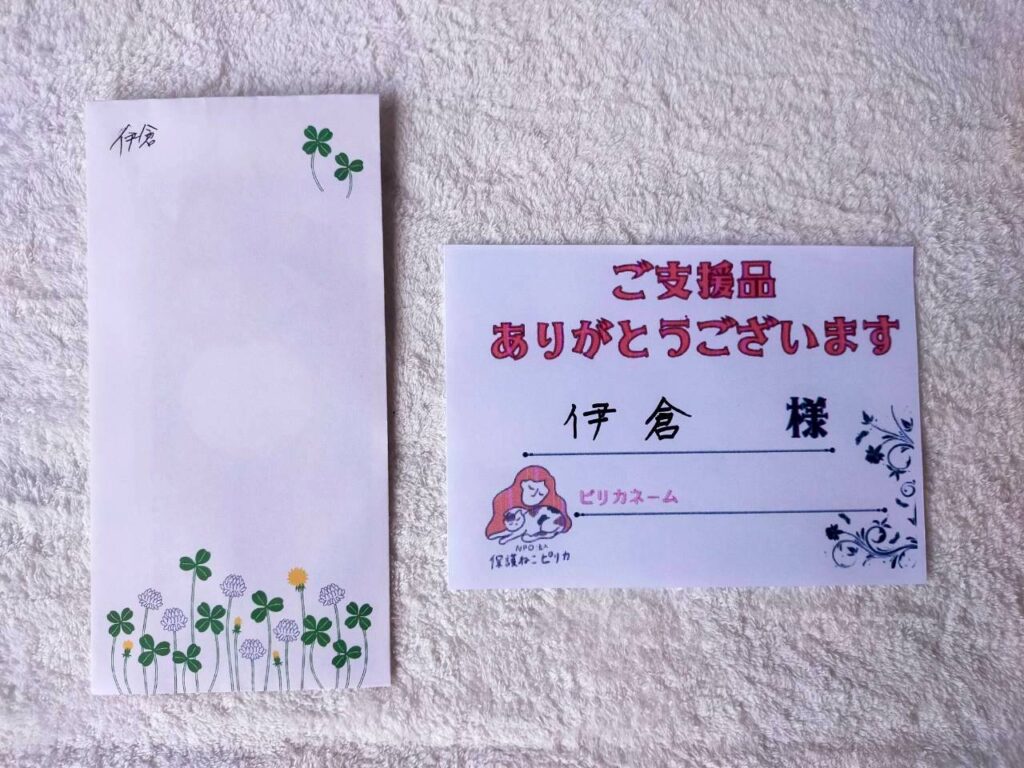 伊倉
ご支援品
ありがとうございます
伊倉 様
ピリカネーム
NPO法人
保護ねこピリカ